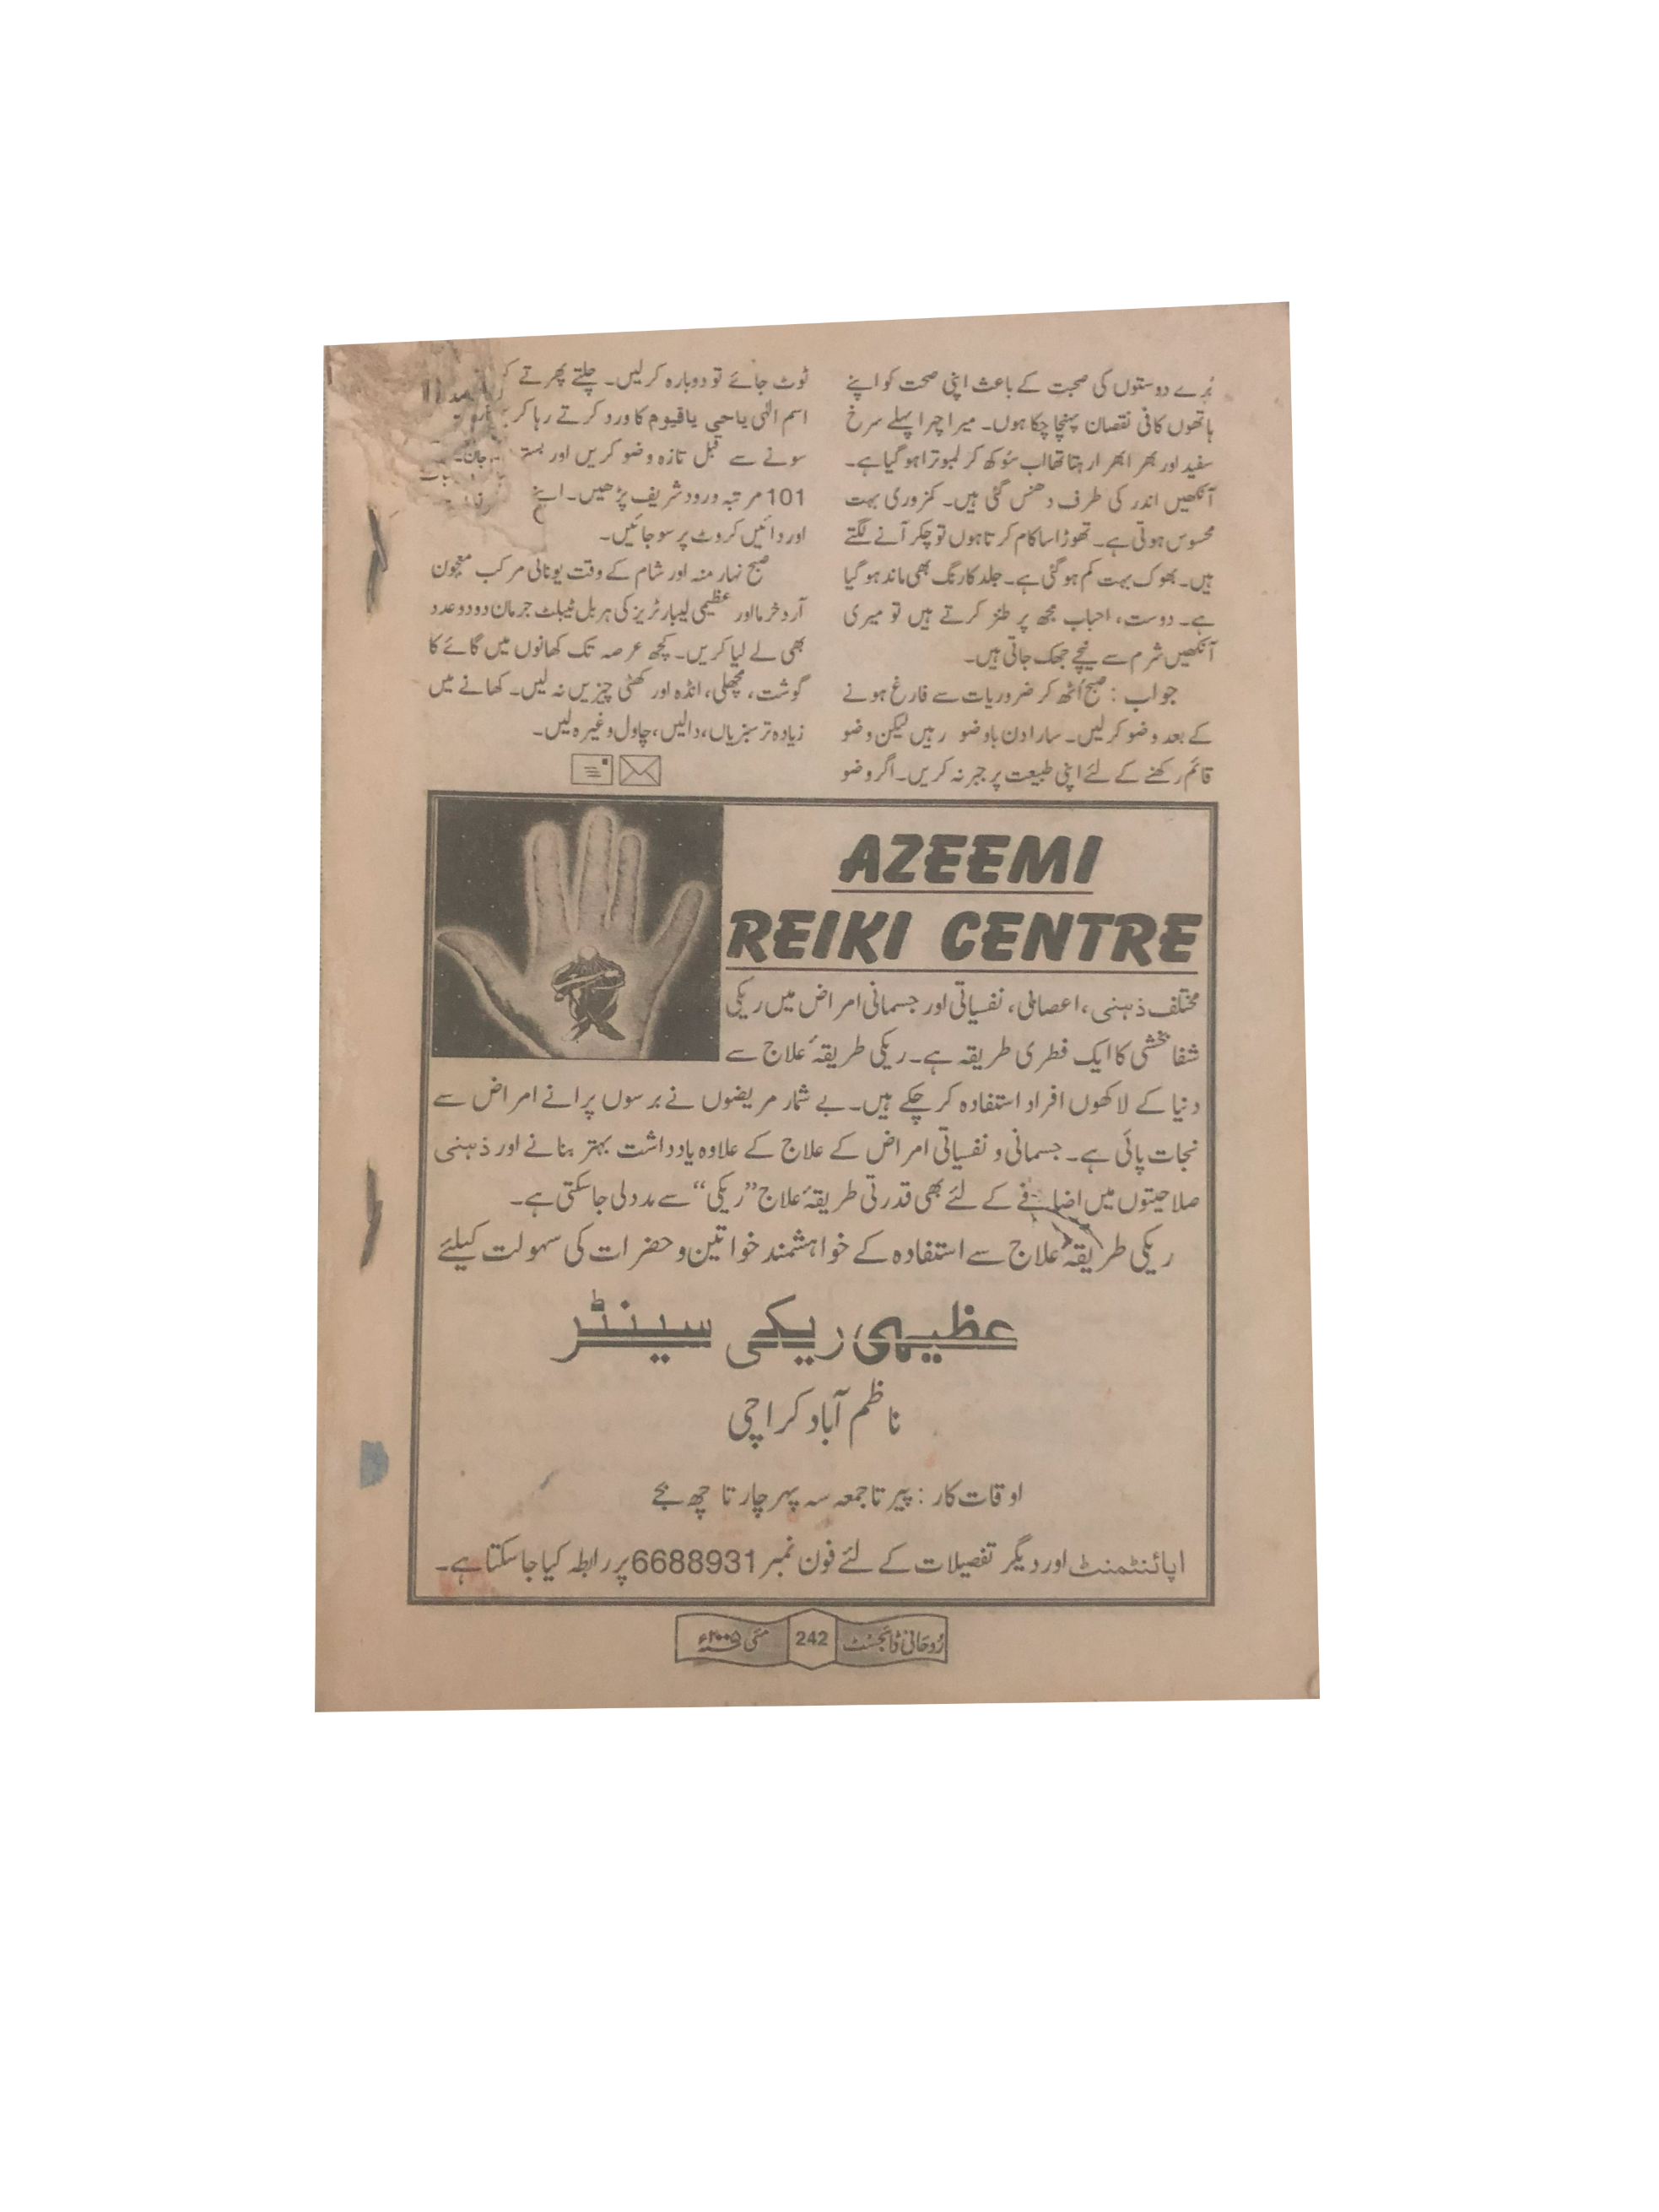 بُرے دوستوں کی صحبت کے باعث اپنی صحت کو اپنے
ہاتھوں کافی نقصان پہنچا چکا ہوں۔ میرا چہرا پہلے سرخ
سفید اور بھر ابھر ارہتا تھا اب سُوکھ کر لمبوترا ہو گیا ہے۔
آنکھیں اندر کی طرف دھنس گئی ہیں۔ کمزوری بہت
محسوس ہوتی ہے۔ تھوڑا سا کام کرتا ہوں تو چکر آنے لگتے
ہیں۔ بھوک بہت کم ہو گئی ہے۔ جلد کا رنگ بھی ماند ہو گیا
ہے۔ دوست، احباب مجھ پر طنز کرتے ہیں تو میری
آنکھیں شرم سے نیچے جھک جاتی ہیں۔
جواب : صبح اُٹھ کر ضروریات سے فارغ ہونے
کے بعد وضو کرلیں۔ سارا دن باوضو رہیں لیکن وضو
قائم رکھنے کے لئے اپنی طبیعت پر جبر نہ کریں۔ اگر وضو
ٹوٹ جائے تو دوبارہ کرلیں۔ چلتے پھرتے
اسم الٰہی یاحی یاقیوم کا ورد کرتے رہا کر
سونے سے قبل تازہ وضو کریں اور بستر
101 مرتبہ ورود شریف پڑھیں۔ اپنے
اور دائیں کروٹ پر سو جائیں۔
صبح نہار منہ اور شام کے وقت یونانی مرکب معجون
آرد خرما اور عظیمی لیبارٹریز کی ہربل ٹیبلٹ جرمان دو دو عدد
بھی لے لیا کریں۔ کچھ عرصہ تک کھانوں میں گائے کا
گوشت، مچھلی، انڈہ اور کھٹی چیزیں نہ لیں۔ کھانے میں
زیادہ تر سبزیاں، دالیں، چاول وغیرہ لیں۔
AZEEMI
REIKI CENTRE
مختلف ذہنی، اعصابی، نفسیاتی اور جسمانی امراض میں ریکی
شفا بخشی کا ایک فطری طریقہ ہے۔ ریکی طریقۂ علاج سے
دنیا کے لاکھوں افراد استفادہ کر چکے ہیں۔ بے شمار مریضوں نے برسوں پرانے امراض سے
نجات پائی ہے۔ جسمانی و نفسیاتی امراض کے علاج کے علاوہ یادداشت بہتر بنانے اور ذہنی
صلاحیتوں میں اضافے کے لئے بھی قدرتی طریقۂ علاج ”ریکی“ سے مدد لی جاسکتی ہے۔
ریکی طریقۂ علاج سے استفادہ کے خواہشمند خواتین و حضرات کی سہولت کیلئے
عظیمی ریکی سینٹر
ناظم آباد کراچی
اوقات کار : پیر تا جمعہ سہ پہر چار تا چھ بجے
اپائنٹمنٹ اور دیگر تفصیلات کے لئے فون نمبر 6688931 پر رابطہ کیا جاسکتا ہے۔
رُوحانی ڈائجسٹ 242 مئی ۲۰۰۵ء